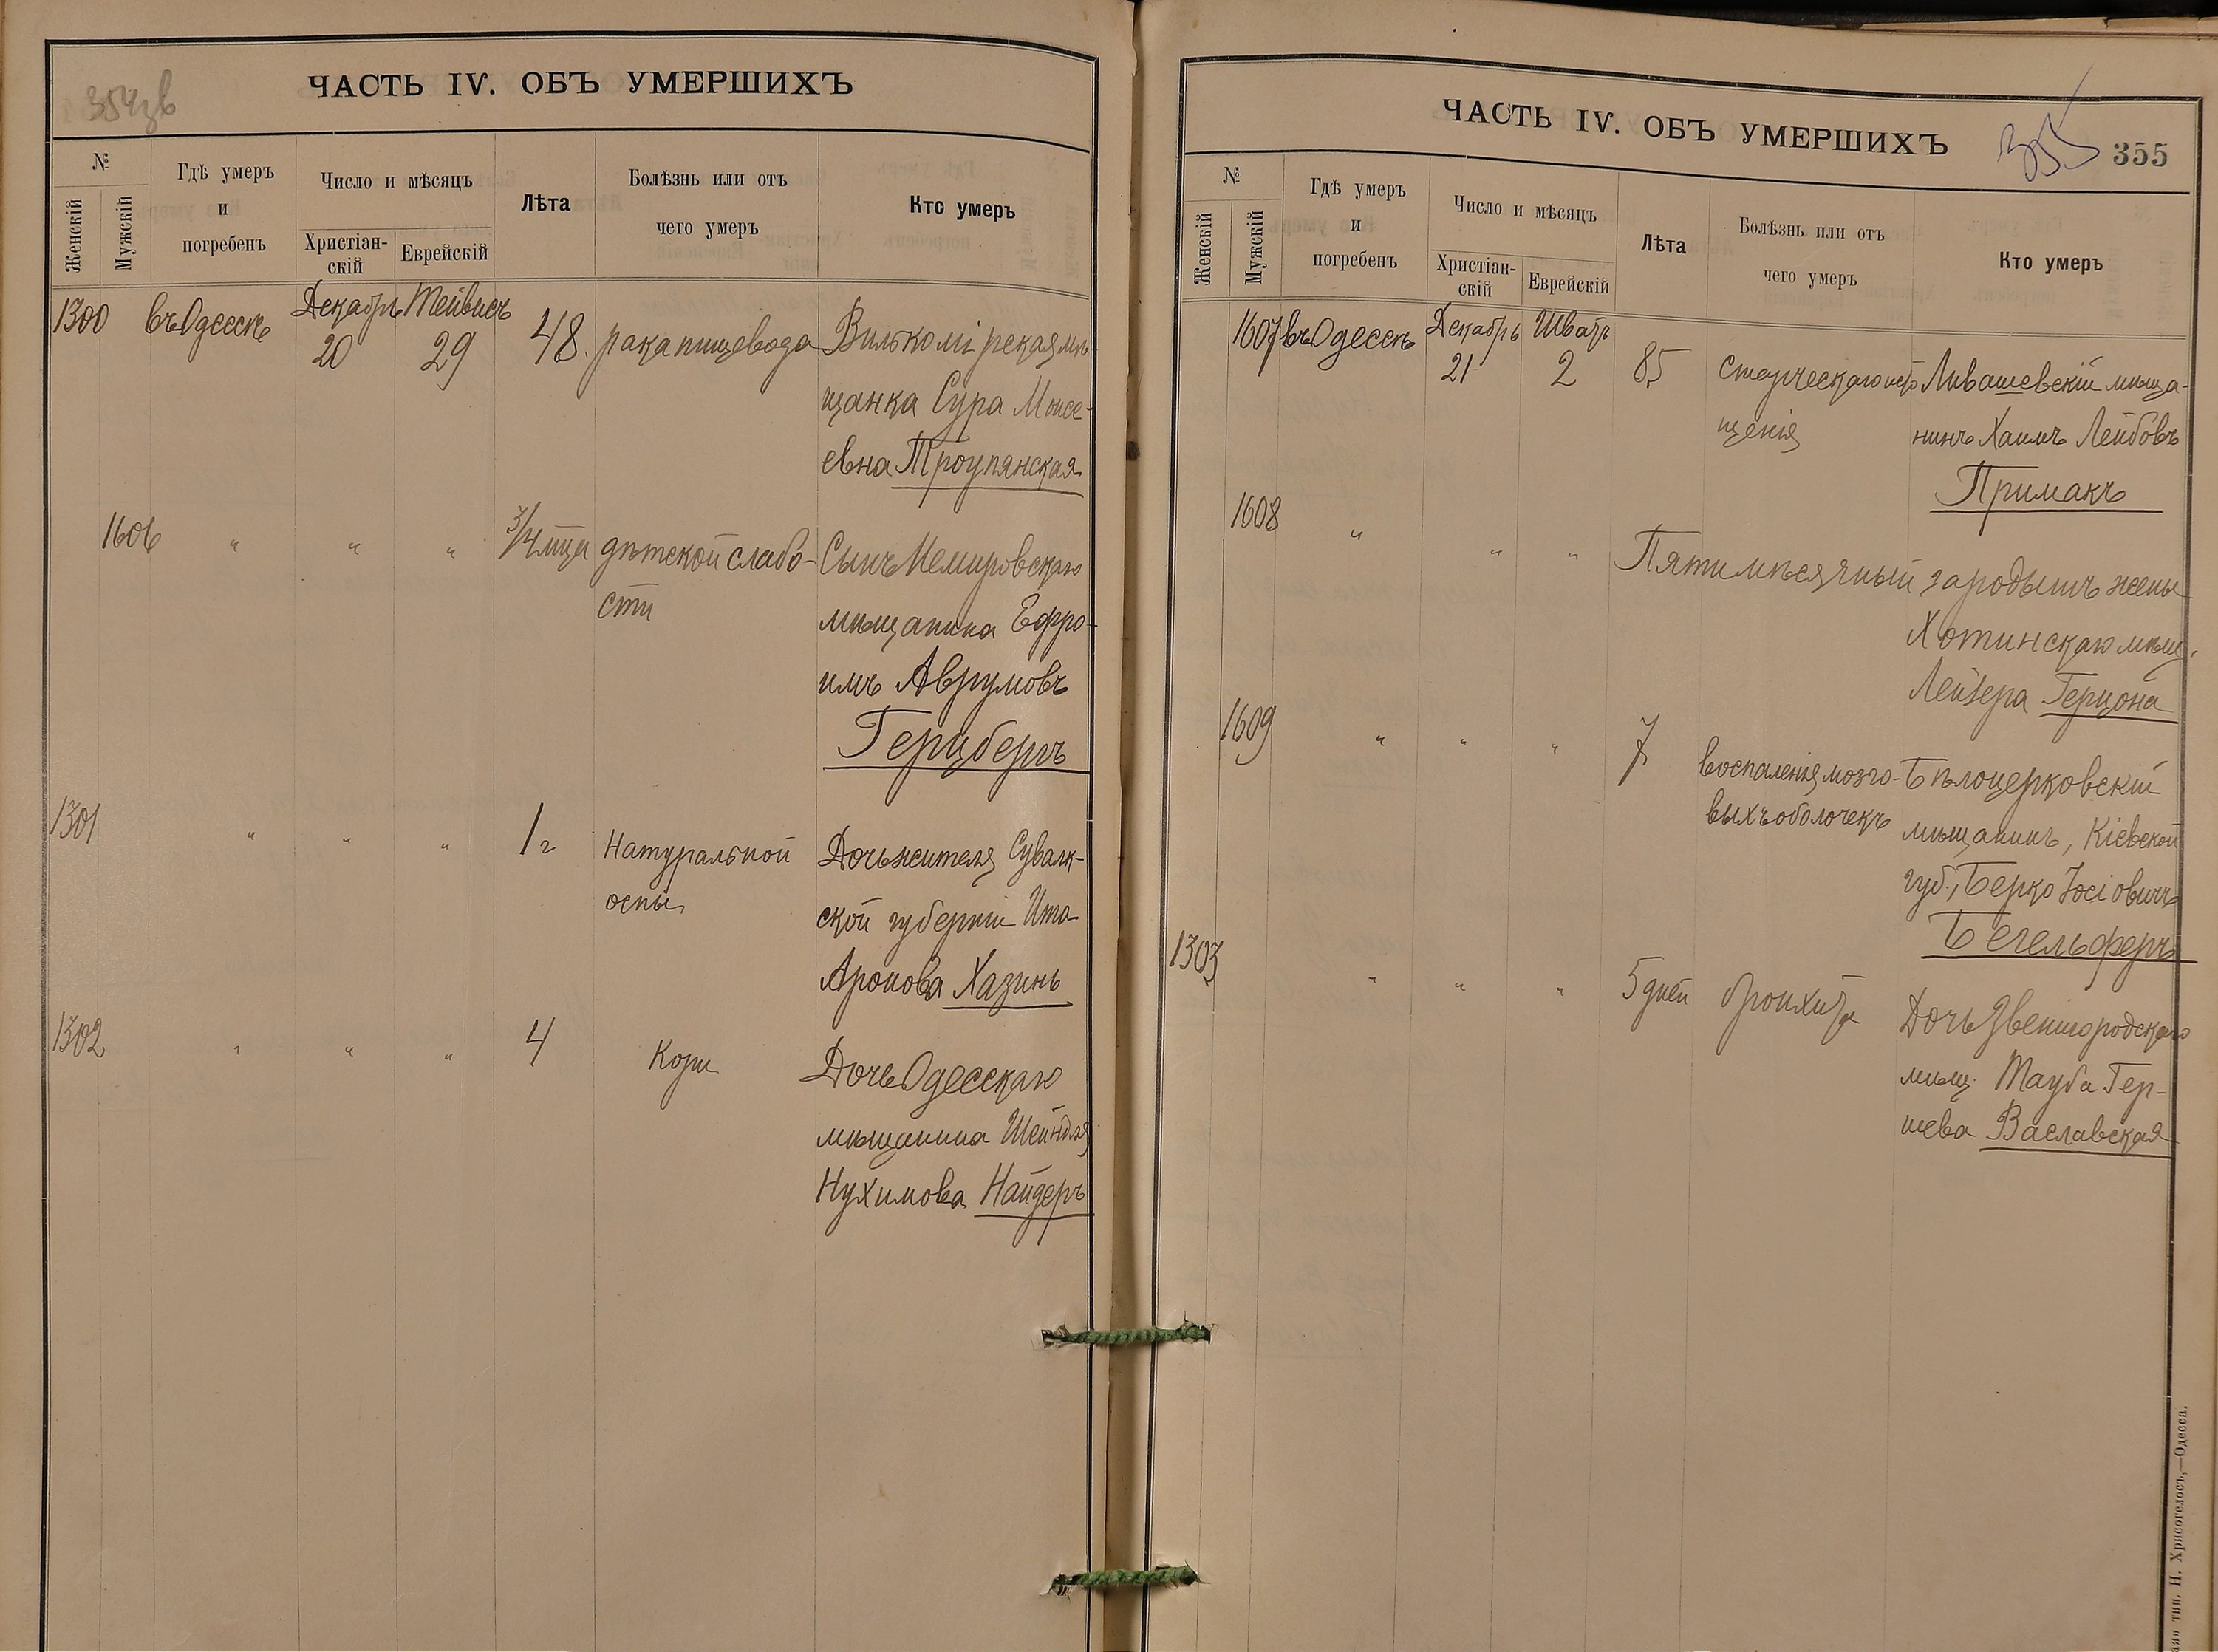 354 зв
ЧАСТЬ IV. ОБЪ УМЕРШИХЪ
№
Женскій
Мужскій
Гдѣ умеръ
и
погребенъ
Число и мѣсяцъ
Христіан-
скій
Еврейскій
Лѣта
Болѣзнь или отъ
чего умеръ
Кто умеръ
1300 въ Одессѣ Декабрь 20 Тейвисъ 29 48. рака пищевода Вилькомірская мѣ-
щанка Сура Моисе-
евна Троупянская
1606 " " " 3/4 мца дѣтской слабо- Сынъ Немировскаго
сти мѣщанина Ефро-
имъ Аврумовъ
Герцбергъ
1301 " " " 1 г Натуральной Дочь жителя Сувалк-
оспы ской губерніи Ита
Аронова Хазинъ
1302 " " " 4 Кори Дочь Одесскаго
мѣщанина Шейндля
Нухимова Найдеръ
ЧАСТЬ IV. ОБЪ УМЕРШИХЪ
355 355
№
Женскій
Мужскій
Гдѣ умеръ
и
погребенъ
Число и мѣсяцъ
Христіан-
скій
Еврейскій
Лѣта
Болѣзнь или отъ
чего умеръ
Кто умеръ
1607 въ Одессѣ Декабрь 21 Шватъ 2 85 Старческаго исто Ливашевскій мѣща-
щенія нинъ Хаимъ Лейбовъ
Примакъ
1608 " " " Пятимѣсячный зародышъ жены
Хотинскаго мѣщ.
Лейзера Герцона
1609 " " " 7 воспаленія мозго- Бѣлоцерковскій
выхъ оболочекъ мѣщанинъ, Кіевской
губ., Берко Іосіовичъ
Бегельферъ
1303 " " " 5 дней бронхита Дочь Звенигородскаго
мѣщ. Тауба Гер-
шеваВаславская
тип. Н. Хрисогелосъ,—Одесса.